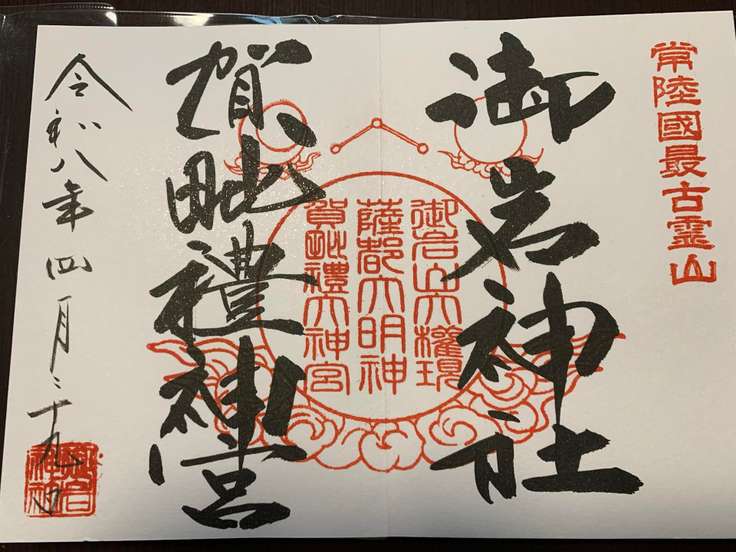 常陸國最古霊山
御岩神社
御岩山大権現
薩都大明神
賀毗禮大神宮
賀毗禮神宮
令和八年四月二十九日